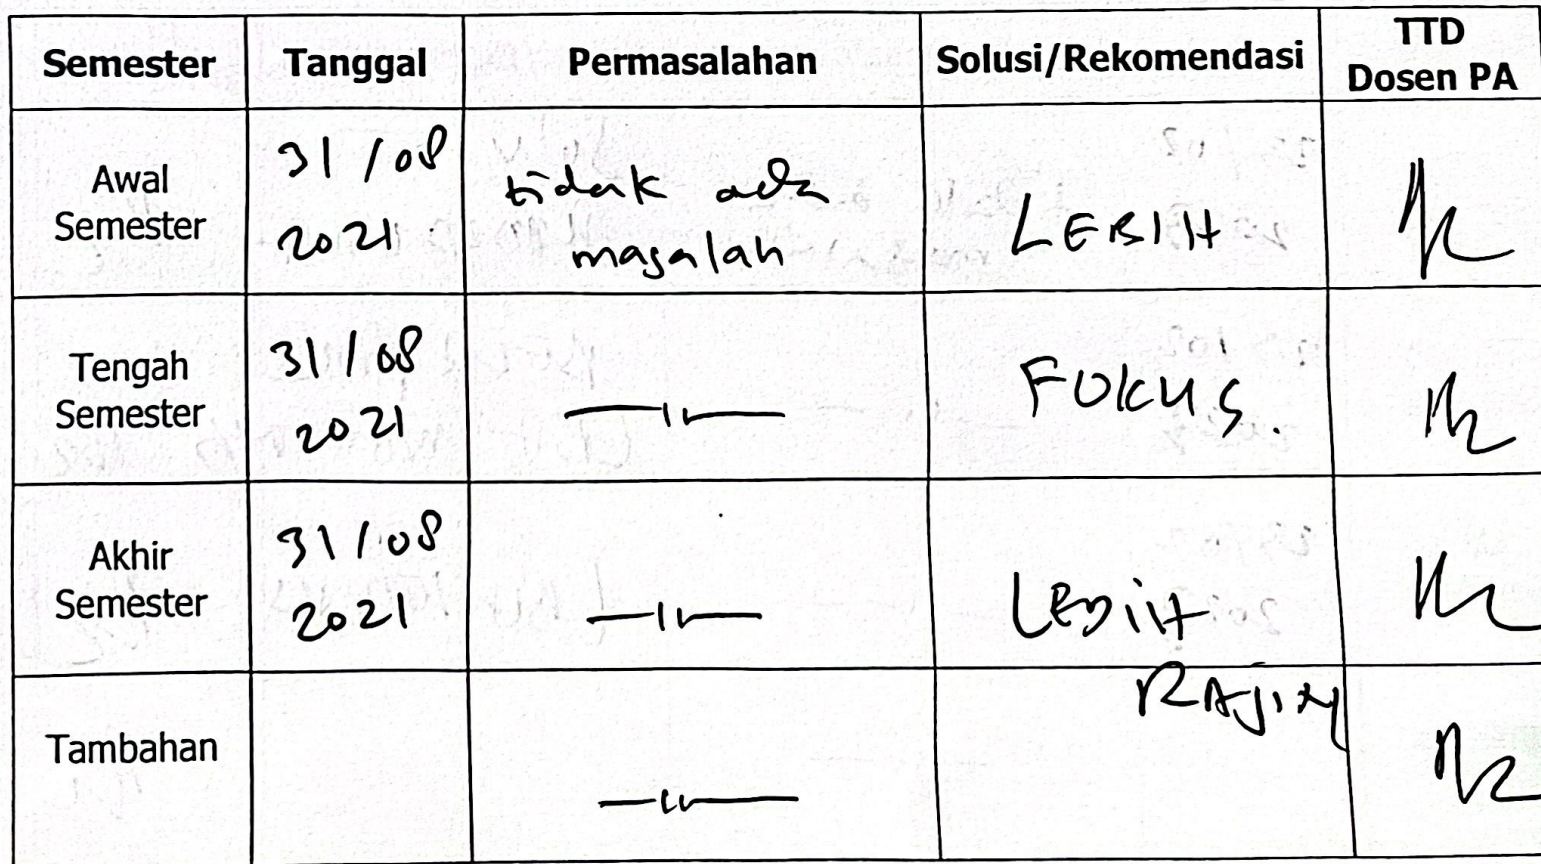 Semester Tanggal Permasalahan Solusi/Rekomendasi TTD Dosen PA
Awal Semester
31/08
2021
tidak ada
masalah
LEBIH
Tengah Semester
31/08
2021
—〃—
FOKUS.
Akhir Semester
31/08
2021
—〃—
LEBIH
RAJIN
Tambahan
—〃—